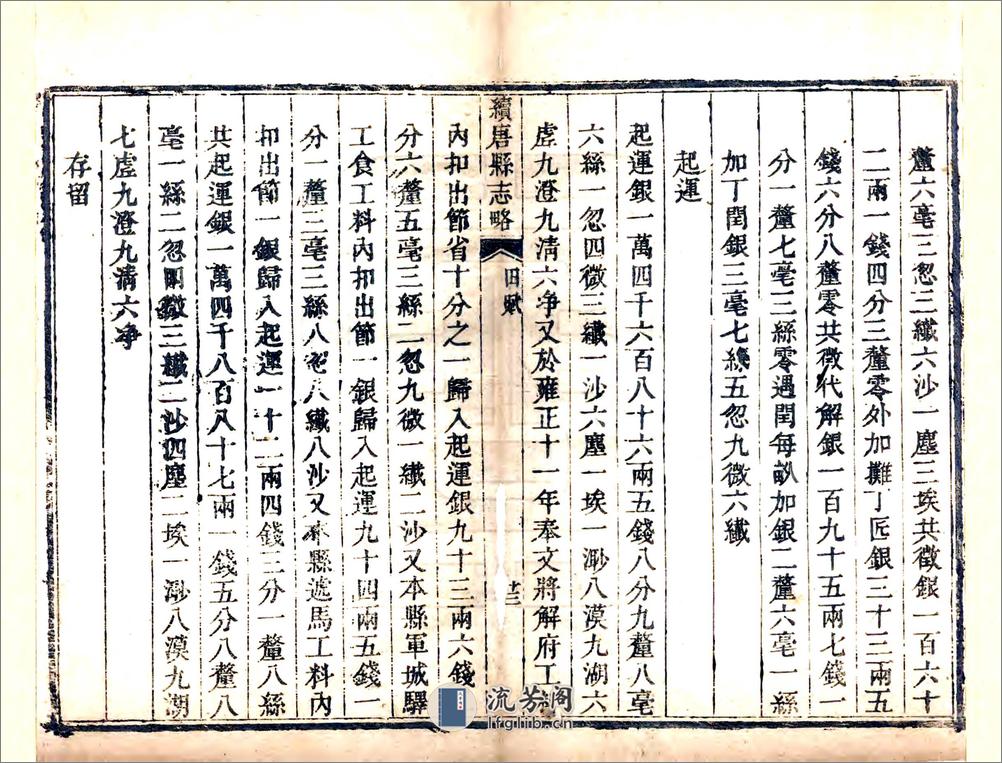 釐六毫三忽三纖六沙一塵三埃共徵銀一百六十
二兩一錢四分三釐零外加攤丁匠銀三十三兩五
錢六分八釐零共徵代解銀一百九十五兩七錢一
分一釐七毫三絲零遇閏每畝加銀二釐六毫一絲
加丁閏銀三毫七絲五忽九微六纖
起運
起運銀一萬四千六百八十六兩五錢八分九釐八毫
六絲一忽四微三纖一沙六塵一埃一渺八漠九湖六
虛九澄九清六净又於雍正十一年奉文將解府工
續唐縣志略
田賦
十三
內扣出節省十分之一歸入起運銀九十三兩六錢
分六釐五毫三絲二忽九微一纖二沙又本縣軍城驛
工食工料內扣出節一銀歸入起運九十四兩五錢一
分一釐三毫三絲八忽八纖八沙又本縣遞馬工料內
扣出節一銀歸入起運一十二兩四錢三分一釐八絲
共起運銀一萬四千八百八十七兩一錢五分八釐八
毫一絲二忽四微三纖二沙四塵二埃一渺八漠九湖
七虛九澄九清六净
存留
流芳阁
lfglib.cn